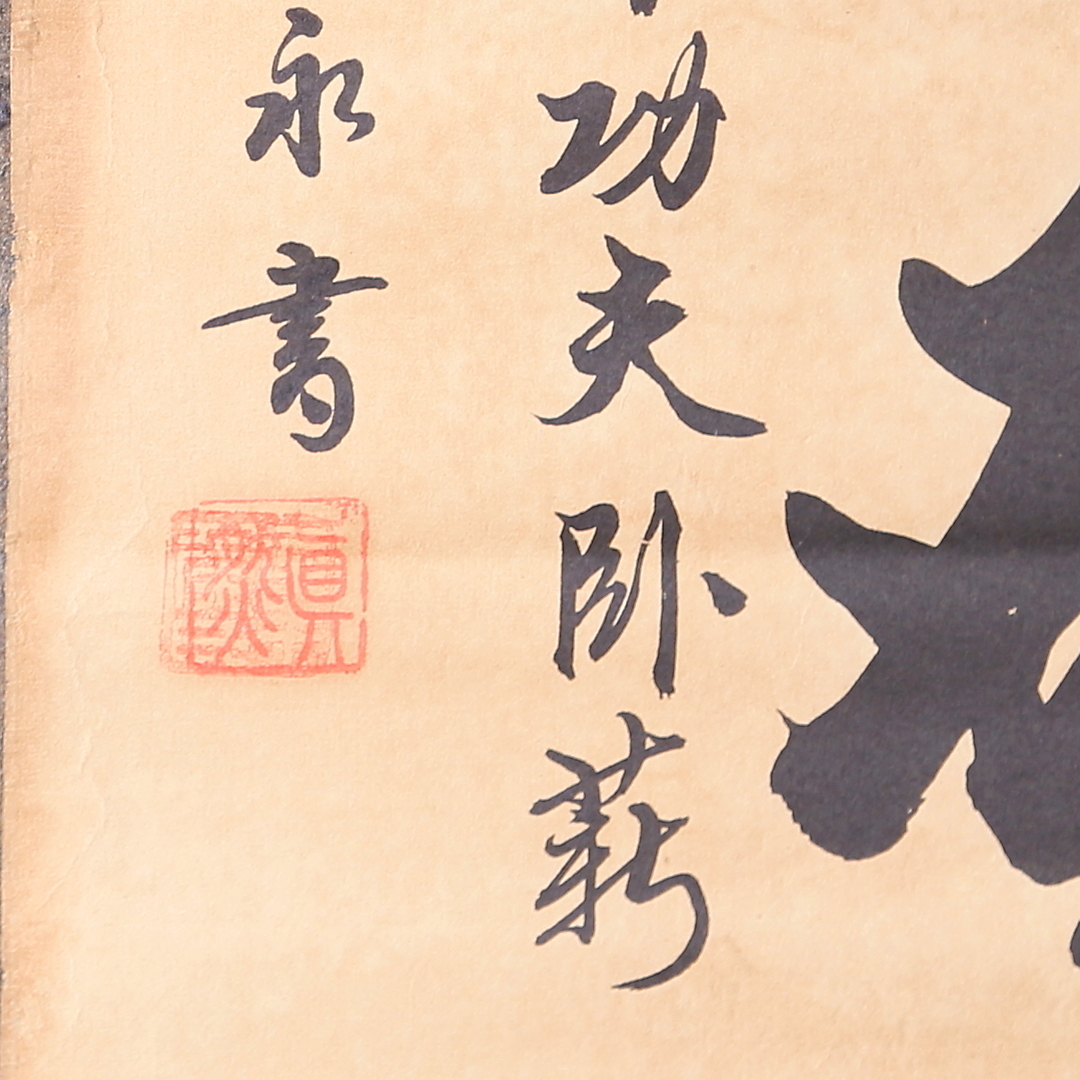 功夫卧薪
永書